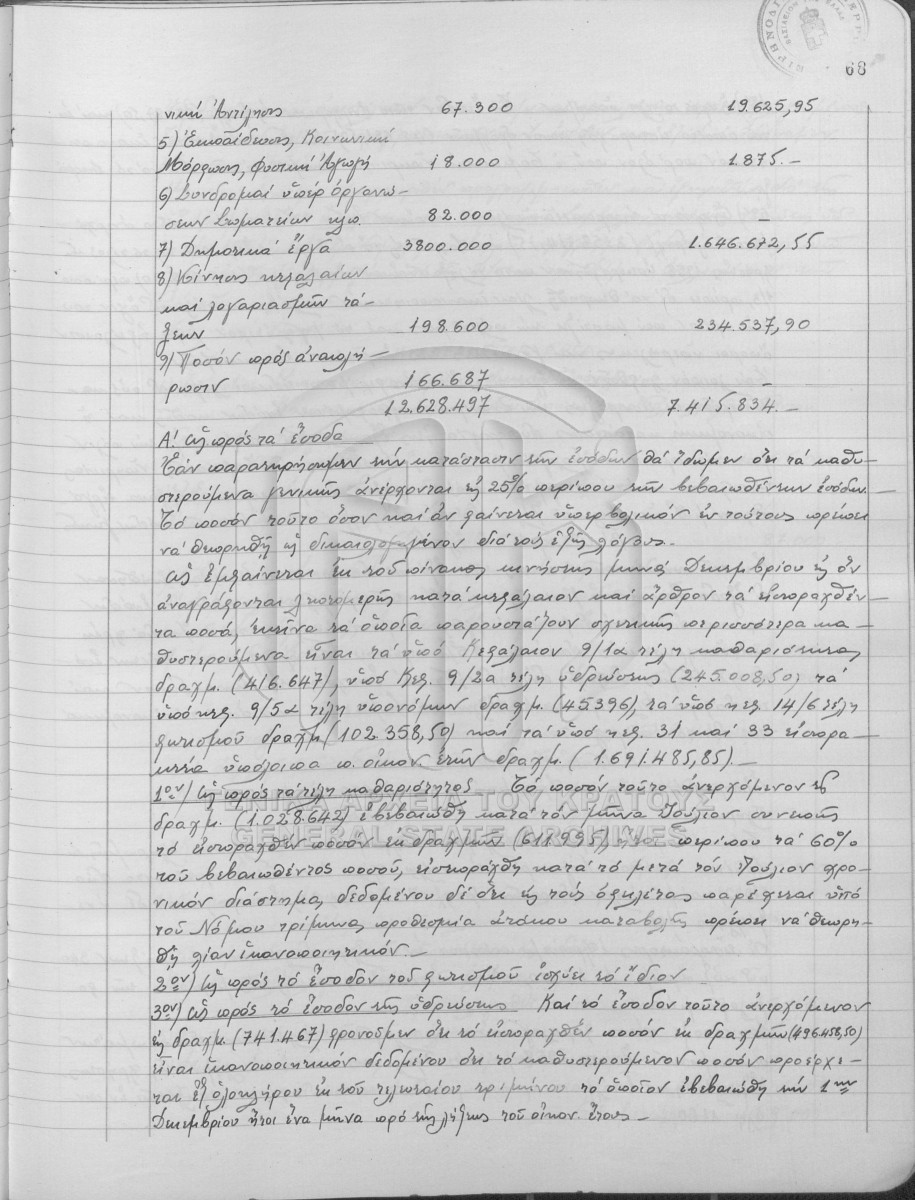 68
νική Ἀντίληψις 67.300 19.625,95
5) Ἐκπαίδευσις, Κοινωνική
Μόρφωσις, Φυσική Ἀγωγή 18.000 1.875.—
6) Συνδρομαί ὑπέρ ὀργανώ-
σεων Σωματείων κλπ. 82.000 —
7) Δημοτικά ἔργα 3800.000 1.646.672,55
8) Κίνησις κεφαλαίων
καί λογαριασμῶν τά-
ξεων 198.600 234.537,90
9) Ποσόν πρός ἀναπλή-
ρωσιν 166.687 —
12.628.497 7.415.834.—
Α' Ὡς πρός τά ἔσοδα
Ἐάν παρατηρήσωμεν τήν κατάστασιν τῶν ἐσόδων θά ἴδωμεν ὅτι τά καθυ-
στερούμενα γενικῶς ἀνέρχονται εἰς 25% περίπου τῶν βεβαιωθέντων ἐσόδων.
Τό ποσόν τοῦτο ὅσον καί ἄν φαίνεται ὑπερβολικόν ἐν τούτοις πρέπει
νά θεωρηθῇ ὡς δικαιολογημένον διά τούς ἑξῆς λόγους.-
Ὡς ἐμφαίνεται ἐκ τοῦ πίνακος κινήσεως μηνός Δεκεμβρίου εἰς ὅν
ἀναγράφονται λεπτομερῶς κατά κεφάλαιον καί ἄρθρον τά εἰσπραχθέν-
τα ποσά, ἐκεῖνα τά ὁποῖα παρουσιάζουν σχετικῶς περισσότερα κα-
θυστερούμενα εἶναι τά ὑπό Κεφάλαιον 9/1α τέλη καθαριότητος
δραχμ. (416.647), ὑπό Κεφ. 9/2α τέλη ὑδρεύσεως (245.008,50) τά
ὑπό κεφ. 9/5α τέλη ὑπονόμων δραχμ. (45.396), τά ὑπό κεφ. 14/6 τέλη
φωτισμοῦ δραχμ. (102.358,50) καί τά ὑπό κεφ. 31 καί 33 εἰσπρα-
κτέα ὑπόλοιπα π. οἰκον. ἐτῶν δραχμ. (1.691.485,85).-
1ον) Ὡς πρός τά τέλη καθαριότητος Τό ποσόν τοῦτο ἀνερχόμενον εἰς
δραχμ. (1.028.642) ἐβεβαιώθη κατά τόν μῆνα Ἰούλιον συνεπῶς
τό εἰσπραχθέν ποσόν ἐκ δραχμῶν (611.995), ἤτοι περίπου τά 60%
τοῦ βεβαιωθέντος ποσοῦ, εἰσεπράχθη κατά τό μετά τόν Ἰούλιον χρο-
νικόν διάστημα, δεδομένου δέ ὅτι εἰς τούς ὀφειλέτας παρέχεται ὑπό
τοῦ Νόμου τρίμηνος προθεσμία ἀτόκου καταβολῆς πρέπει νά θεωρη-
θῇ λίαν ἱκανοποιητικόν.-
2ον) Ὡς πρός τό ἔσοδον τοῦ φωτισμοῦ ἰσχύει τό ἴδιον
3ον) Ὡς πρός τό ἔσοδον τῆς ὑδρεύσεως Καί τό ἔσοδον τοῦτο ἀνερχόμενον
εἰς δραχμ. (741.467) φρονοῦμεν ὅτι τό εἰσπραχθέν ποσόν ἐκ δραχμῶν (496.458,50)
εἶναι ἱκανοποιητικόν δεδομένου ὅτι τό καθυστερούμενον ποσόν προέρχε-
ται ἐξ ὁλοκλήρου ἐκ τοῦ τελευταίου τριμήνου τό ὁποῖον ἐβεβαιώθη τήν 1ην
Δεκεμβρίου ἤτοι ἕνα μῆνα πρό τῆς λήξεως τοῦ οἰκον. ἔτους.-
ΓΕΝΙΚΑ ΑΡΧΕΙΑ ΤΟΥ ΚΡΑΤΟΥΣ
GENERAL STATE ARCHIVES